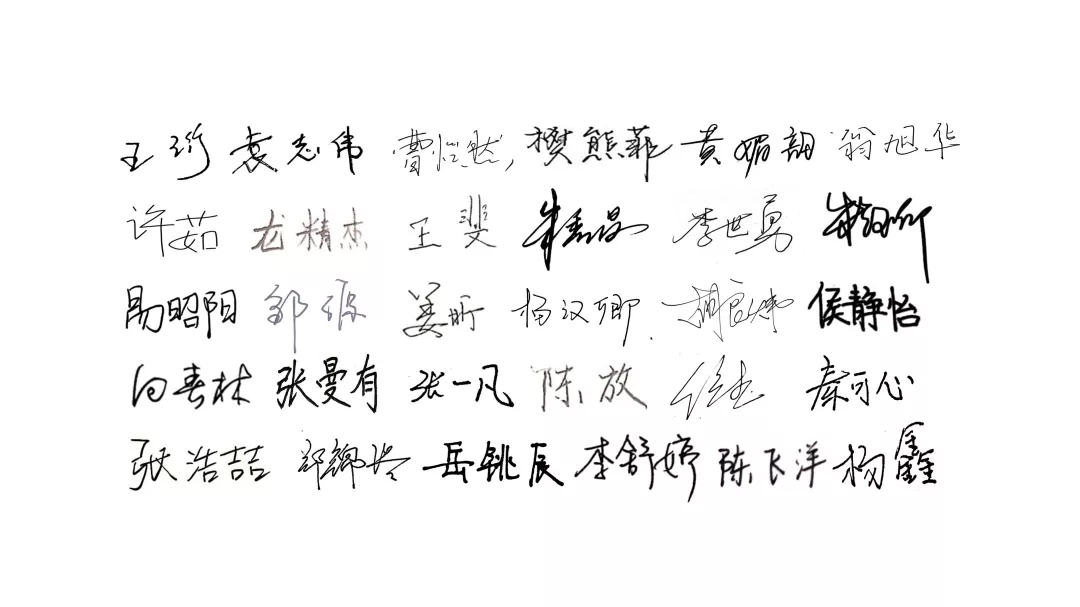 王 袁志伟 曹恺然, 樊熊菲 黄媚韶 翁旭华
许茹 龙精杰 王斐 李世勇
易昭阳 邹 姜昕 杨汉卿 侯静怡
向春林 张曼有 张一凡 陈放 秦可心
张浩喆 岳铫辰 李舒婷 陈飞洋 杨鑫